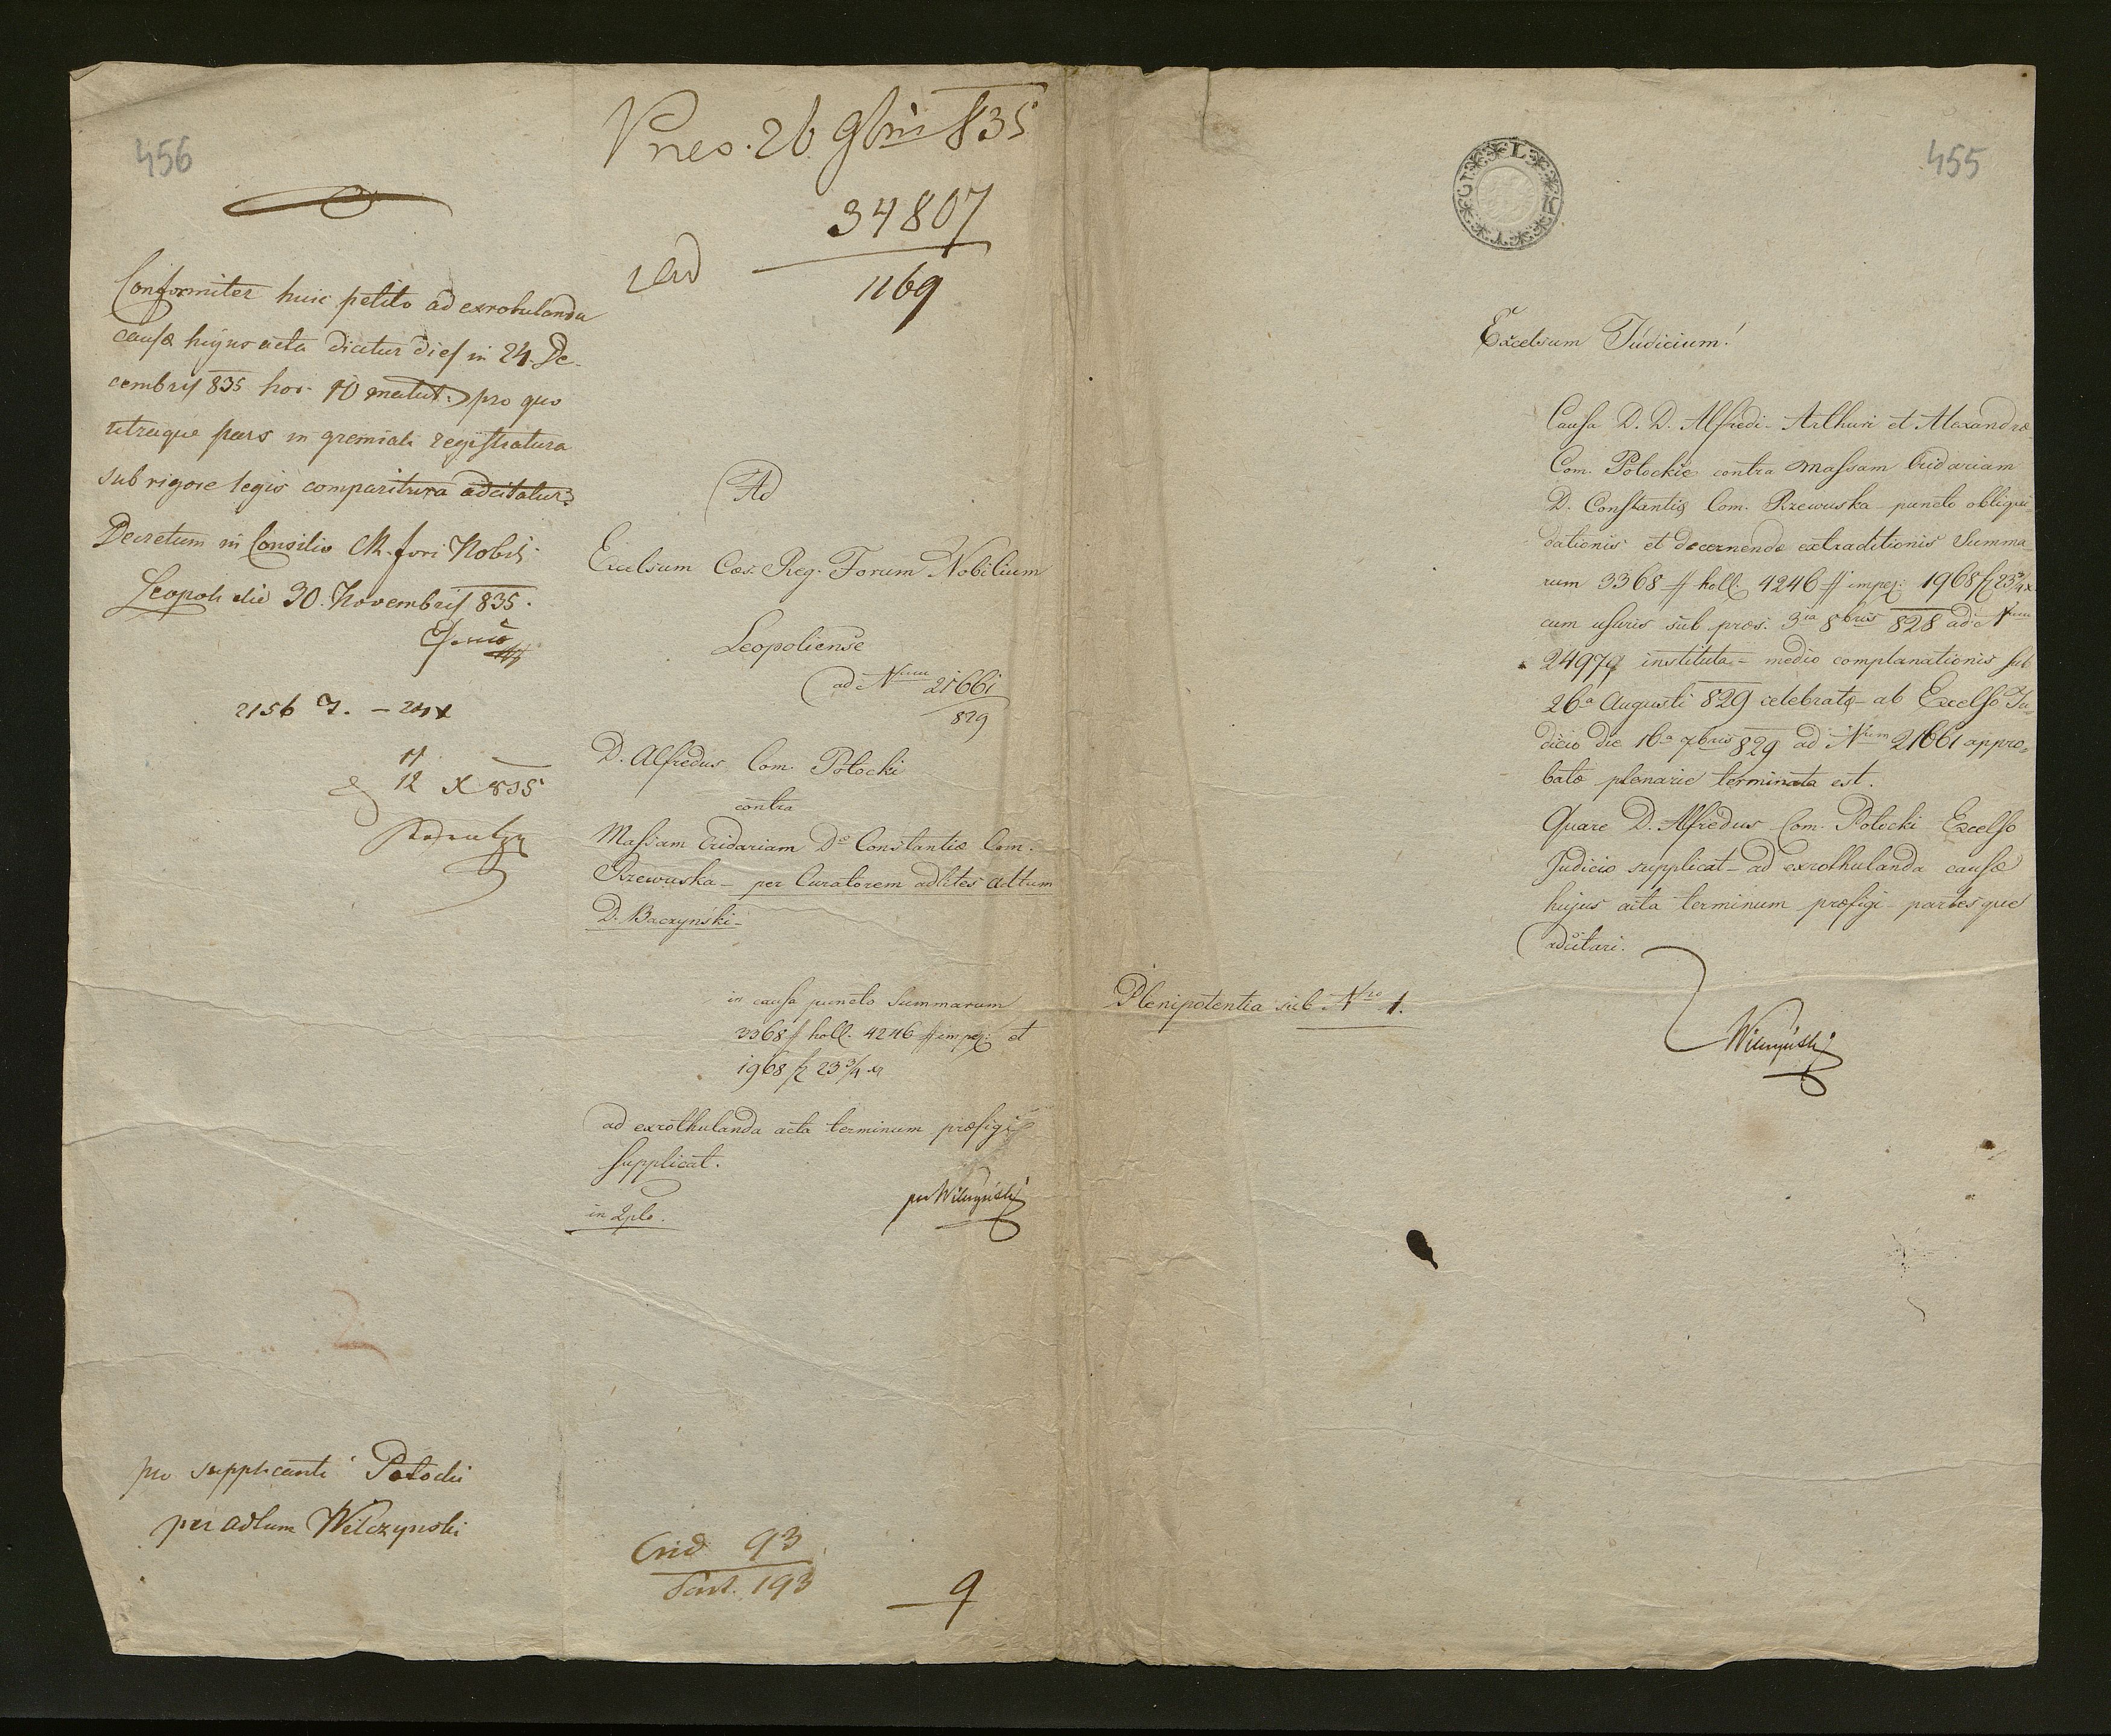 456
Conformiter huic petito ad exrotulanda
causæ hujus acta dicitur dies in 24. De-
cembris 835 hor. 10 matut: pro quo
utraque pars in gremiali registratura
sub rigore legis comparitura adcitatur.
Decretum in Consilio C.R. fori Nobil:
Leopoli die 30. Novembris 835.
2156 J. – 24 x
12 X 835
pro supplicanti Potocki
per Adtum Wilczynski
Pnes. 26 9bris 835
34807
ad
1169
Ad
Excelsum Cæs. Reg. Forum Nobilium
Leopoliense
ad Num 21661
829
D. Alfredus Com. Potocki
contra
Massam Cridariam Dæ Constantiæ Com.
Rzewuska – per Curatorem adlites Adtum
D. Baczyński –
in causa puncto Summarum
3368 # holl. 4246 # imper: et
1968 f 23 3/4 xr
ad exrothulanda acta terminum præfigi
supplicat.
in 2plo.
per Wilczyński
Crid 93
Fasc. 193
9
455
L K
Excelsum Judicium!
Causa D. D. Alfredi – Arthuri et Alexandræ
Com. Potockie contra Massam Cridariam
D. Constantiæ Com. Rzewuska puncto obliqui-
dationis et decernendæ extraditionis Summa-
rum 3368 # holl. 4246 # imper: 1968 f 23 3/4 x
cum usuris sub præs. 3ia 8bris 828 ad Num
24979 instituta – medio complanationis sub
26a Augusti 829 celebratæ – ab Excelso Ju-
dicio die 16a 7bris 829 ad Num 21661 appro-
batæ plenarie terminata est.
Quare D. Alfredus Com. Potocki Excelso
Judicio supplicat – ad exrothulanda causæ
hujus acta terminum præfigi – partesque
adcitari.
Plenipotentia sub Nro 1.
Wilczyński